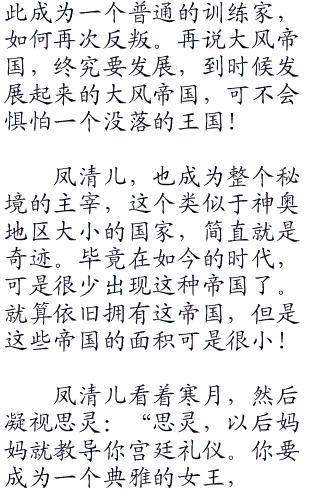 此成为一个普通的训练家，
如何再次反叛。再说大风帝
国，终究要发展，到时候发
展起来的大风帝国，可不会
惧怕一个没落的王国！
凤清儿，也成为整个秘
境的主宰，这个类似于神奥
地区大小的国家，简直就是
奇迹。毕竟在如今的时代，
可是很少出现这种帝国了。
就算依旧拥有这帝国，但是
这些帝国的面积可是很小！
凤清儿看着寒月，然后
凝视思灵：“思灵，以后妈
妈就教导你宫廷礼仪。你要
成为一个典雅的女王，